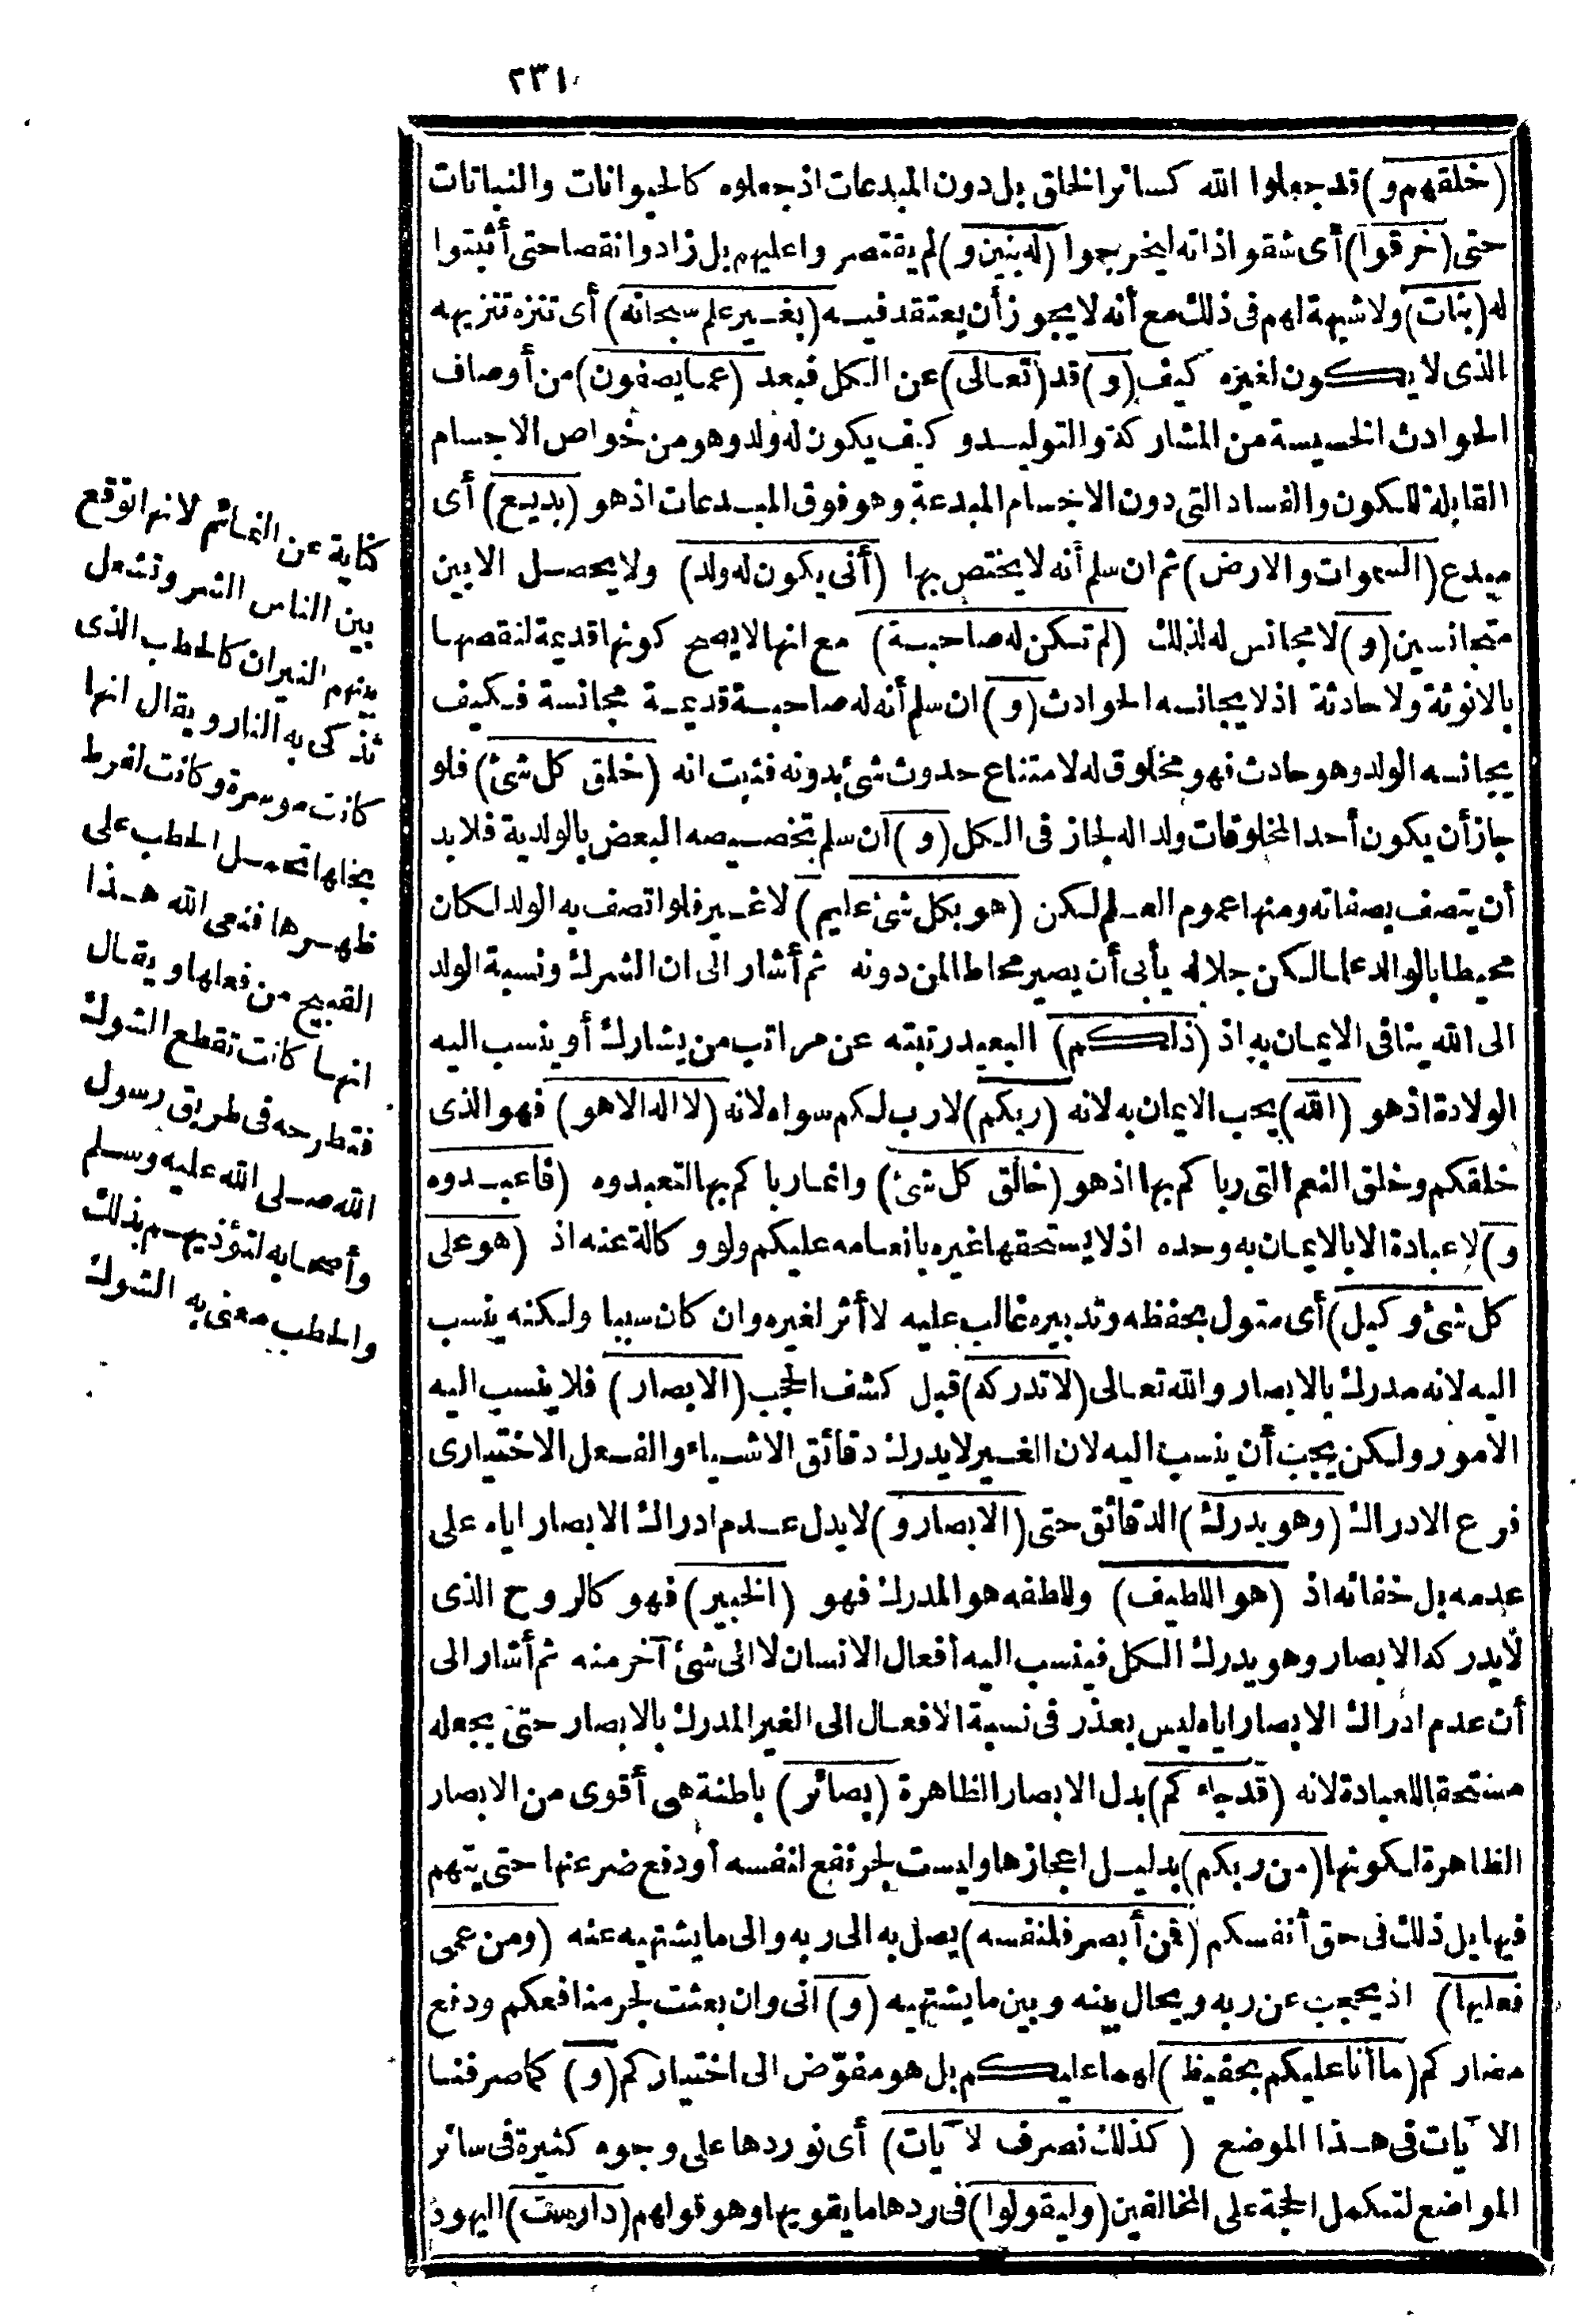 ٢٣١
(خلقهم و) قد جعلوا الله كسائر الخلق بل دون المبدعات اذ جعلوه كالحيوانات والنباتات
حتى (خرقوا) أى شقوا ذاته ليخرجوا (له بنين و) لم يقتصروا عليهم بل زادوا نقصا حتى أثبتوا
له (بنات) ولا شبهة لهم فى ذلك مع أنه لا يجوز أن يعتقد فيه (بغير علم سبحانه) أى تنزه تنزيهه
الذى لا يكون لغيره كيف (و) قد (تعالى) عن الكل فبعد (عما يصفون) من أوصاف
الحوادث الخسيسة من المشاركة والتوليد و كيف يكون له ولد وهو من خواص الاجسام
القابلة للكون والفساد التى دون الاجسام المبدعة وهو فوق المبدعات اذ هو (بديع) أى
مبدع (السموات والارض) ثم ان سلم أنه لا يختص بها (أنى يكون له ولد) ولا يحصل الا بين
متجانسين (و) لا مجانس له لذلك (لم تكن له صاحبة) مع انها لا يصح كونها قديمة لنقصها
بالانوثة ولا حادثة اذ لا يجانسه الحوادث (و) ان سلم أنه له صاحبة قديمة مجانسة فكيف
يجانسه الولد وهو حادث فهو مخلوق له لامتناع حدوث شئ بدونه فثبت انه (خلق كل شئ) فلو
جاز أن يكون أحد المخلوقات ولدا له لجاز فى الكل (و) ان سلم تخصيصه البعض بالولدية فلا بد
أن يتصف بصفاته ومنها عموم العلم لكن (هو بكل شئ عليم) لا غير فلو اتصف به الولد لكان
محيطا بالوالد علما لكن جلاله يأبى أن يصير محاطا لمن دونه ثم أشار الى ان الشرك ونسبة الولد
الى الله ينافى الايمان به اذ (ذلكم) البعيد رتبته عن مراتب من يشارك أو ينسب اليه
الولادة اذ هو (الله) يجب الايمان به لانه (ربكم) لا رب لكم سواه لانه (لا اله الا هو) فهو الذى
خلقكم وخلق النعم التى رباكم بها اذ هو (خالق كل شئ) وانما رباكم بها لتعبدوه (فاعبدوه
و) لا عبادة الا بالايمان به وحده اذ لا يستحقها غيره بانعامه عليكم ولو وكالة عنه اذ (هو على
كل شئ وكيل) أى متول بحفظه وتدبيره غالب عليه لا أثر لغيره وان كان سببا ولكنه ينسب
اليه لانه مدرك بالابصار والله تعالى (لا تدركه) قبل كشف الحجب (الابصار) فلا ينسب اليه
الامور ولكن يجب أن ينسب اليه لان الغير لا يدرك دقائق الاشياء والفعل الاختيارى
فرع الادراك (وهو يدرك) الدقائق حتى (الابصار و) لا يدل عدم ادراك الابصار اياه على
عدمه بل خفائه اذ (هو اللطيف) وللطفه هو المدرك فهو (الخبير) فهو كالروح الذى
لا يدركه الابصار وهو يدرك الكل فينسب اليه أفعال الانسان لا الى شئ آخر منه ثم أشار الى
أن عدم ادراك الابصار اياه ليس بعذر فى نسبة الافعال الى الغير المدرك بالابصار حتى يجعله
مستحقا للعبادة لانه (قد جاءكم) بدل الابصار الظاهرة (بصائر) باطنة هى أقوى من الابصار
الظاهرة لكونها (من ربكم) بدليل اعجازها وليست لجر نفع لنفسه أو دفع ضر عنها حتى يتهم
فيها بل ذلك فى حق أنفسكم (فمن أبصر فلنفسه) يصل به الى ربه والى ما يشتهيه عنه (ومن عمى
فعليها) اذ يحجب عن ربه ويحال بينه وبين ما يشتهيه (و) انى وان بعثت لجر منافعكم ودفع
مضاركم (ما أنا عليكم بحفيظ) لهما عليكم بل هو مفوّض الى اختياركم (و) كما صرفنا
الآيات فى هذا الموضع (كذلك نصرف لآيات) أى نوردها على وجوه كثيرة فى سائر
المواضع لتكمل الحجة على المخالفين (وليقولوا) فى ردها ما يقويها وهو قولهم (دارست) اليهود
كناية عن النمائم لانها توقع
بين الناس الشر وتشعل
بينهم النيران كالحطب الذى
تذكى به النار ويقال انها
كانت موسرة وكانت لفرط
بخلها تحمل الحطب على
ظهرها فنعى الله هذا
القبيح من فعلها ويقال
انها كانت تقطع الشوك
فتطرحه فى طريق رسول
الله صلى الله عليه وسلم
وأصحابه لتؤذيهم بذلك
والحطب معنى به الشوك